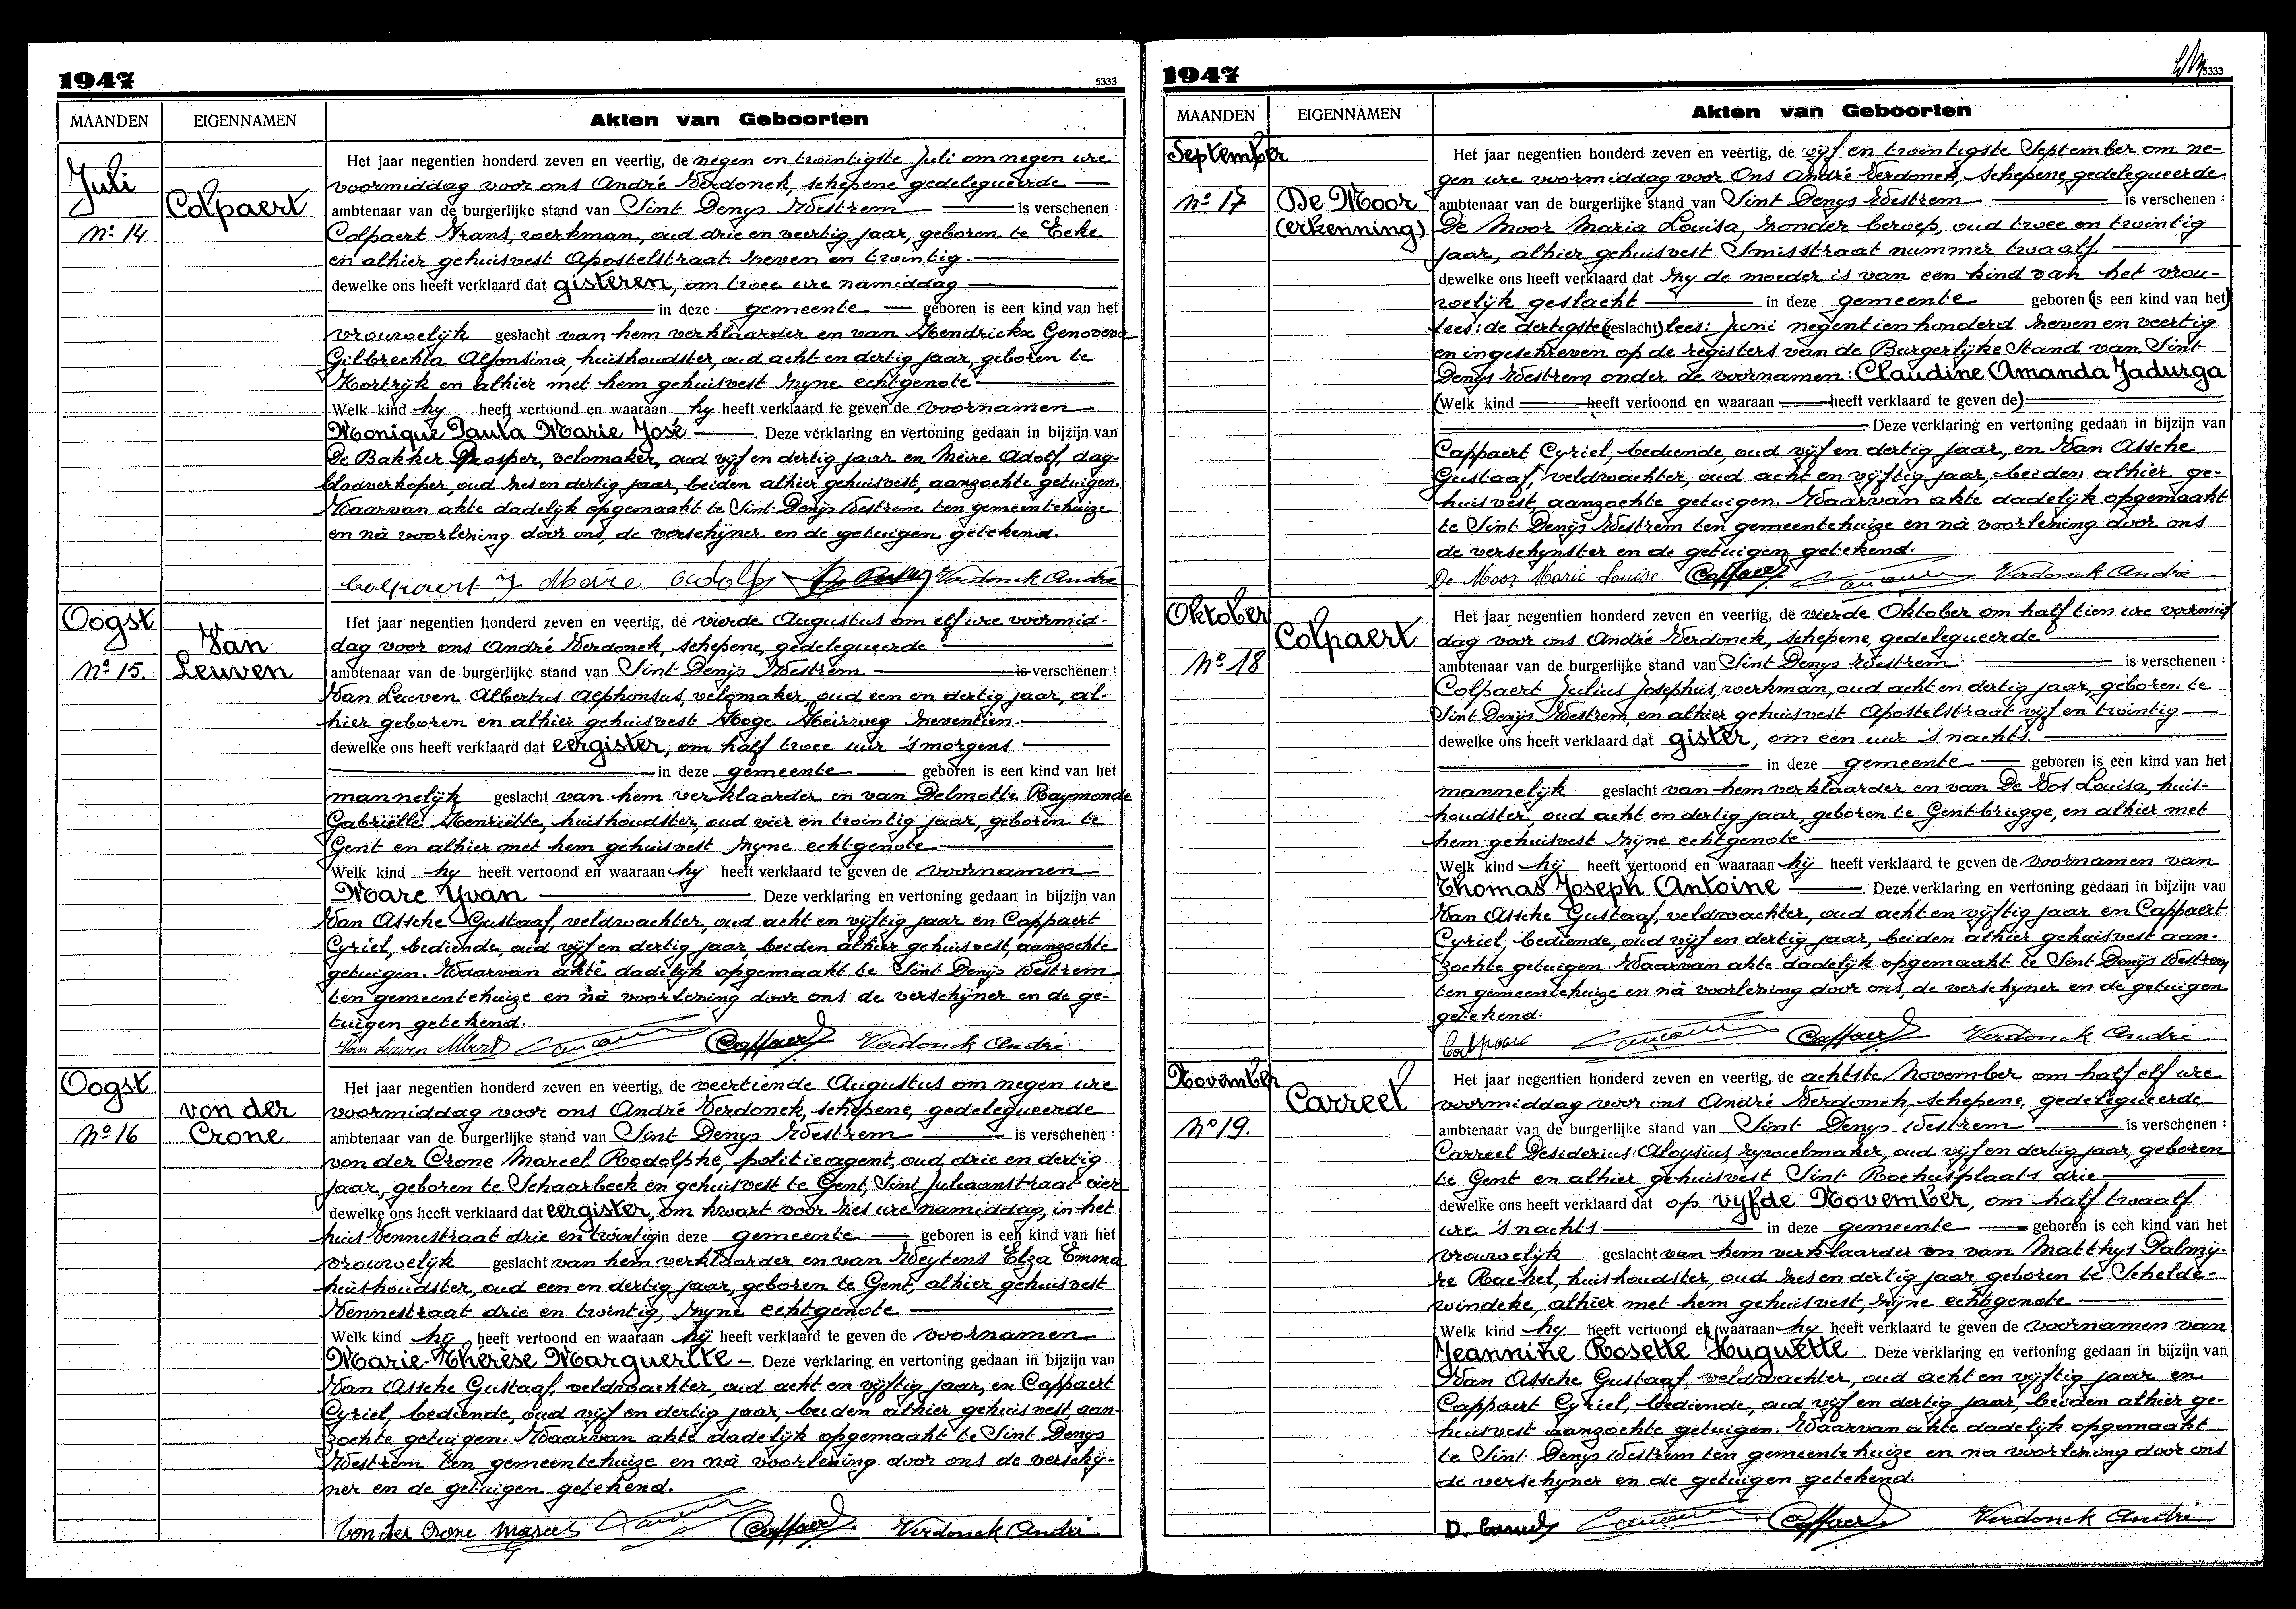 1947
5333
MAANDEN
EIGENNAMEN
Akten van Geboorten
Juli
Nº 14
Colpaert
Het jaar negentien honderd zeven en veertig, de negen en twintigste Juli om negen ure
voormiddag voor ons André Verdonck, schepene gedelegueerde
ambtenaar van de burgerlijke stand van Sint Denijs Westrem is verschenen :
Colpaert Frans, werkman, oud drie en veertig jaar, geboren te Eeke
en alhier gehuisvest Apostelstraat zeven en twintig.
dewelke ons heeft verklaard dat gisteren, om twee ure namiddag
in deze gemeente geboren is een kind van het
vrouwelijk geslacht van hem verklaarder en van Hendrickx Genoveva
Gilbrechta Alfonsina, huishoudster, oud acht en dertig jaar, geboren te
Kortrijk en alhier met hem gehuisvest zyne echtgenote
Welk kind hy heeft vertoond en waaraan hy heeft verklaard te geven de voornamen
Monique Paula Marie José . Deze verklaring en vertoning gedaan in bijzijn van
De Bakker Prosper, velomaker, oud vijf en dertig jaar en Meire Adolf, dag-
bladverkoper, oud zes en dertig jaar, beiden alhier gehuisvest, aanzochte getuigen.
Waarvan akte dadelijk opgemaakt te Sint Denijs Westrem ten gemeentehuize
en nà voorlezing door ons, de verschijner en de getuigen getekend.
Colpaert J Meire Adolf Verdonck André
Oogst
Nº 15.
Van
Leuven
Het jaar negentien honderd zeven en veertig, de vierde Augustus om elf ure voormid-
dag voor ons André Verdonck, schepene, gedelegueerde
ambtenaar van de burgerlijke stand van Sint Denijs Westrem is verschenen :
Van Leuven Albertus Alphonsus, velomaker, oud een en dertig jaar, al-
hier geboren en alhier gehuisvest Hoge Heirweg zeventien.
dewelke ons heeft verklaard dat eergister, om half twee uur 's morgens
in deze gemeente geboren is een kind van het
mannelijk geslacht van hem verklaarder en van Delmotte Raymonde
Gabriëlle Henriëtte, huishoudster, oud vier en twintig jaar, geboren te
Gent en alhier met hem gehuisvest zyne echtgenote
Welk kind hy heeft vertoond en waaraan hy heeft verklaard te geven de voornamen
Marc Yvan . Deze verklaring en vertoning gedaan in bijzijn van
Van Assche Gustaaf, veldwachter, oud acht en vijftig jaar en Cappaert
Cyriel, bediende, oud vijf en dertig jaar, beiden alhier gehuisvest, aanzochte
getuigen. Waarvan akte dadelijk opgemaakt te Sint Denijs Westrem
ten gemeentehuize en nà voorlezing door ons de verschijner en de ge-
tuigen getekend.
Van Leuven Albert Cappaert Verdonck André
Oogst
Nº 16
von der
Crone
Het jaar negentien honderd zeven en veertig, de veertiende Augustus om negen ure
voormiddag voor ons André Verdonck, schepene, gedelegueerde
ambtenaar van de burgerlijke stand van Sint Denys Westrem is verschenen :
von der Crone Marcel Rodolphe, politieagent, oud drie en dertig
jaar, geboren te Schaarbeek en gehuisvest te Gent, Sint Juliaanstraat vier
dewelke ons heeft verklaard dat eergister, om kwart voor zes ure namiddag, in het
huis Vennestraat drie en twintig in deze gemeente geboren is een kind van het
vrouwelijk geslacht van hem verklaarder en van Weytens Elza Emma
huishoudster, oud een en dertig jaar, geboren te Gent, alhier gehuisvest
Vennestraat drie en twintig, zyne echtgenote
Welk kind hij heeft vertoond en waaraan hij heeft verklaard te geven de voornamen
Marie-Thérèse Marguerite . Deze verklaring en vertoning gedaan in bijzijn van
Van Assche Gustaaf, veldwachter, oud acht en vijftig jaar, en Cappaert
Cyriel, bediende, oud vijf en dertig jaar, beiden alhier gehuisvest, aan-
zochte getuigen. Waarvan akte dadelijk opgemaakt te Sint Denys
Westrem ten gemeentehuize en nà voorlezing door ons de verschij-
ner en de getuigen getekend.
Von der Crone Marcel Cappaert Verdonck André
1947
5333
MAANDEN
EIGENNAMEN
Akten van Geboorten
September
Nº 17
De Moor
(erkenning)
Het jaar negentien honderd zeven en veertig, de vijf en twintigste September om ne-
gen ure voormiddag voor Ons André Verdonck, schepene, gedelegueerde
ambtenaar van de burgerlijke stand van Sint Denys Westrem is verschenen :
De Moor Maria Louisa, zonder beroep, oud twee en twintig
jaar, alhier gehuisvest Smisstraat nummer twaalf.
dewelke ons heeft verklaard dat zy de moeder is van een kind van het vrou-
welijk geslacht in deze gemeente geboren (is een kind van het)
lees: de dertigste (geslacht) lees: Juni negentien honderd zeven en veertig
en ingeschreven op de registers van de Burgerlijke Stand van Sint
Denys Westrem onder de voornamen: Claudine Amanda Jadurga
(Welk kind heeft vertoond en waaraan heeft verklaard te geven de)
. Deze verklaring en vertoning gedaan in bijzijn van
Cappaert Cyriel, bediende, oud vijf en dertig jaar, en Van Assche
Gustaaf, veldwachter, oud acht en vijftig jaar, beiden alhier ge-
huisvest, aanzochte getuigen. Waarvan akte dadelijk opgemaakt
te Sint Denijs Westrem ten gemeentehuize en nà voorlezing door ons
de verschynster en de getuigen getekend.
De Moor Marie Louise. Cappaert Verdonck André
Oktober
Nº 18
Colpaert
Het jaar negentien honderd zeven en veertig, de vierde Oktober om half tien ure voormid
dag voor ons André Verdonck, schepene, gedelegueerde
ambtenaar van de burgerlijke stand van Sint Denys Westrem is verschenen :
Colpaert Julius Josephus, werkman, oud acht en dertig jaar, geboren te
Sint Denijs Westrem, en alhier gehuisvest Apostelstraat vijf en twintig
dewelke ons heeft verklaard dat gister, om een uur 's nachts.
in deze gemeente geboren is een kind van het
mannelijk geslacht van hem verklaarder en van De Vos Louisa, huis-
houdster, oud acht en dertig jaar, geboren te Gent-brugge, en alhier met
hem gehuisvest zijne echtgenote
Welk kind hij heeft vertoond en waaraan hij heeft verklaard te geven de voornamen van
Thomas Joseph Antoine . Deze verklaring en vertoning gedaan in bijzijn van
Van Assche Gustaaf, veldwachter, oud acht en vijftig jaar en Cappaert
Cyriel, bediende, oud vijf en dertig jaar, beiden alhier gehuisvest aan-
zochte getuigen. Waarvan akte dadelijk opgemaakt te Sint Denijs Westrem
ten gemeentehuize en nà voorlezing door ons, de verschyner en de getuigen
getekend.
Colpaert Cappaert Verdonck André
November
Nº 19.
Carreel
Het jaar negentien honderd zeven en veertig, de achtste November om half elf ure
voormiddag voor ons André Verdonck, schepene, gedelegueerde
ambtenaar van de burgerlijke stand van Sint Denys Westrem is verschenen :
Carreel Desiderius Aloysius rywielmaker, oud vijf en dertig jaar, geboren
te Gent en alhier gehuisvest Sint Rochusplaats drie
dewelke ons heeft verklaard dat op vyfde November, om half twaalf
ure 's nachts in deze gemeente geboren is een kind van het
vrouwelijk geslacht van hem verklaarder en van Matthys Palmy-
re Rachel, huishoudster, oud zes en dertig jaar, geboren te Schelde-
windeke, alhier met hem gehuisvest, zijne echtgenote
Welk kind hy heeft vertoond en waaraan hy heeft verklaard te geven de voornamen van
Jeannine Rosette Huguette . Deze verklaring en vertoning gedaan in bijzijn van
Van Assche Gustaaf, veldwachter, oud acht en vijftig jaar en
Cappaert Cyriel, bediende, oud vijf en dertig jaar, beiden alhier ge-
huisvest aanzochte getuigen. Waarvan akte dadelijk opgemaakt
te Sint Denys Westrem ten gemeentehuize en na voorlezing door ons
de verschyner en de getuigen getekend.
D. Carreel Cappaert Verdonck André